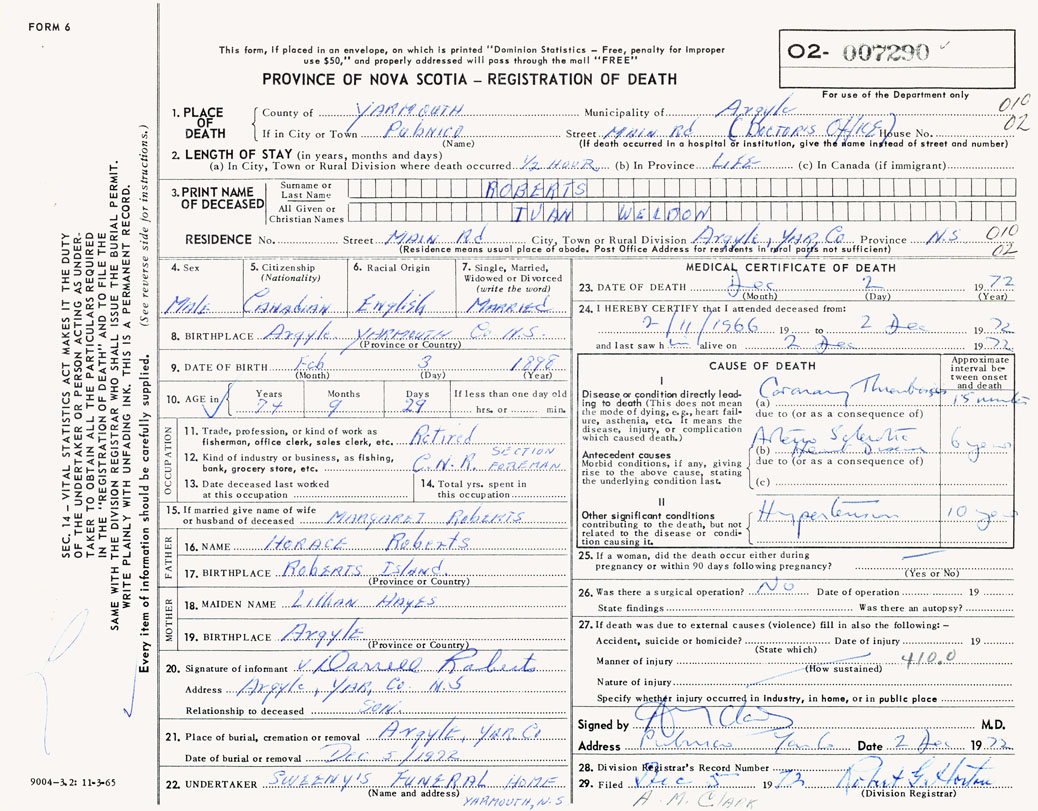 FORM 6
This form, if placed in an envelope, on which is printed "Dominion Statistics – Free, penalty for improper
use $50," and properly addressed will pass through the mail "FREE"
PROVINCE OF NOVA SCOTIA – REGISTRATION OF DEATH
02- 007290
For use of the Department only
010
02
1. PLACE OF DEATH
County of YARMOUTH Municipality of Argyle
If in City or Town PUBNICO Street MAIN Rd (DOCTORIS OFFICE) House No.
(Name) (If death occurred in a hospital or institution, give the name instead of street and number)
2. LENGTH OF STAY (in years, months and days)
(a) In City, Town or Rural Division where death occurred 1/2 HOUR (b) In Province LIFE (c) In Canada (if immigrant)
3. PRINT NAME OF DECEASED
Surname or Last Name ROBERTS
All Given or Christian Names IVAN WELDON
RESIDENCE No. Street MAIN Rd City, Town or Rural Division Argyle, YAR, Co Province N.S 010
(Residence means usual place of abode. Post Office Address for residents in rural parts not sufficient) 02
4. Sex
Male
5. Citizenship (Nationality)
Canadian
6. Racial Origin
English
7. Single, Married, Widowed or Divorced (write the word)
MARRIED
8. BIRTHPLACE Argyle YARMOUTH Co N.S.
(Province or Country)
9. DATE OF BIRTH Feb 3 1898
(Month) (Day) (Year)
10. AGE in Years Months Days If less than one day old
74 9 29 hrs. or min.
OCCUPATION
11. Trade, profession, or kind of work as fisherman, office clerk, sales clerk, etc. Retired
12. Kind of industry or business, as fishing, bank, grocery store, etc. C.N.R. SECTION FOREMAN
13. Date deceased last worked at this occupation
14. Total yrs. spent in this occupation
15. If married give name of wife or husband of deceased MARGARET ROBERTS
FATHER
16. NAME HORACE Roberts
17. BIRTHPLACE Roberts Island
(Province or Country)
MOTHER
18. MAIDEN NAME Lillian HAYES
19. BIRTHPLACE Argyle
(Province or Country)
20. Signature of informant Darrell Roberts
Address Argyle, YAR, Co. N.S
Relationship to deceased SON.
21. Place of burial, cremation or removal Argyle, YAR. Co
Date of burial or removal Dec 5/1972
22. UNDERTAKER SWEENY'S FUNERAL HOME
(Name and address) YARMOUTH, N.S
MEDICAL CERTIFICATE OF DEATH
23. DATE OF DEATH Dec 2 1972
(Month) (Day) (Year)
24. I HEREBY CERTIFY that I attended deceased from:
2/11/1966 19 to 2 Dec 1972
and last saw h alive on 2 Dec 1972
CAUSE OF DEATH
Approximate interval between onset and death
I
Disease or condition directly leading to death (This does not mean the mode of dying, e.g., heart failure, asthenia, etc. It means the disease, injury, or complication which caused death.)
(a) Coronary Thrombosis 15 minutes
due to (or as a consequence of)
Antecedent causes
Morbid conditions, if any, giving rise to the above cause, stating the underlying condition last.
(b) Arterio Sclerotic Heart Disease 6 years
due to (or as a consequence of)
(c)
II
Other significant conditions contributing to the death, but not related to the disease or condition causing it.
Hypertension 10 years
25. If a woman, did the death occur either during pregnancy or within 90 days following pregnancy?
(Yes or No)
26. Was there a surgical operation? No Date of operation 19
State findings Was there an autopsy?
27. If death was due to external causes (violence) fill in also the following: –
Accident, suicide or homicide? Date of injury 19
(State which)
Manner of injury 410.0
(How sustained)
Nature of injury
Specify whether injury occurred in industry, in home, or in public place
Signed by M.D.
Address Pubnico Yar Co Date 2 Dec 1972
28. Division Registrar's Record Number
29. Filed Dec 5 1972 Robert G. Horton
(Division Registrar)
A. M. Clark
SEC. 14 – VITAL STATISTICS ACT MAKES IT THE DUTY
OF THE UNDERTAKER OR PERSON ACTING AS UNDER-
TAKER TO OBTAIN ALL THE PARTICULARS REQUIRED
IN THE "REGISTRATION OF DEATH" AND TO FILE THE
SAME WITH THE DIVISION REGISTRAR WHO SHALL ISSUE THE BURIAL PERMIT.
WRITE PLAINLY WITH UNFADING INK. THIS IS A PERMANENT RECORD.
Every item of information should be carefully supplied. (See reverse side for instructions.)
9004-3.2: 11-3-65